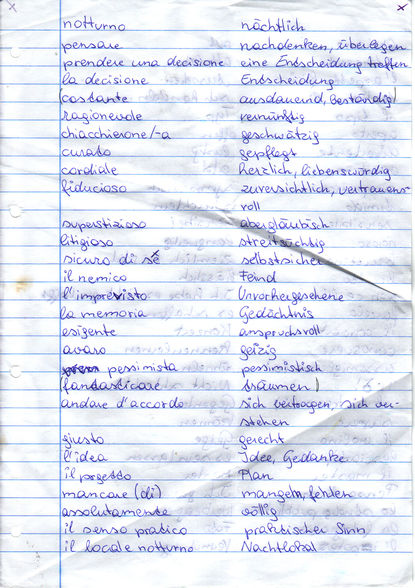 notturno nächtlich
pensare nachdenken, überlegen
prendere una decisione eine Entscheidung treffen
la decisione Entscheidung
(costante ausdauernd, beständig)
ragionevole vernünftig
chiacchierone/-a geschwätzig
curato gepflegt
cordiale herzlich, liebenswürdig
fiducioso zuversichtlich, vertrauens-
voll
superstizioso abergläubisch
litigioso streitsüchtig
sicuro di sé selbstsicher
il nemico Feind
l'imprevisto Unvorhergesehene
la memoria Gedächtnis
esigente anspruchsvoll
avaro geizig
pessimista pessimistisch
(fantasticare träumen)
andare d'accordo sich vertragen, sich ver-
stehen
giusto gerecht
l'idea Idee, Gedanke
il progetto Plan
mancare (di) mangeln, fehlen
assolutamente völlig
il senso pratico praktischer Sinn
il locale notturno Nachtlokal